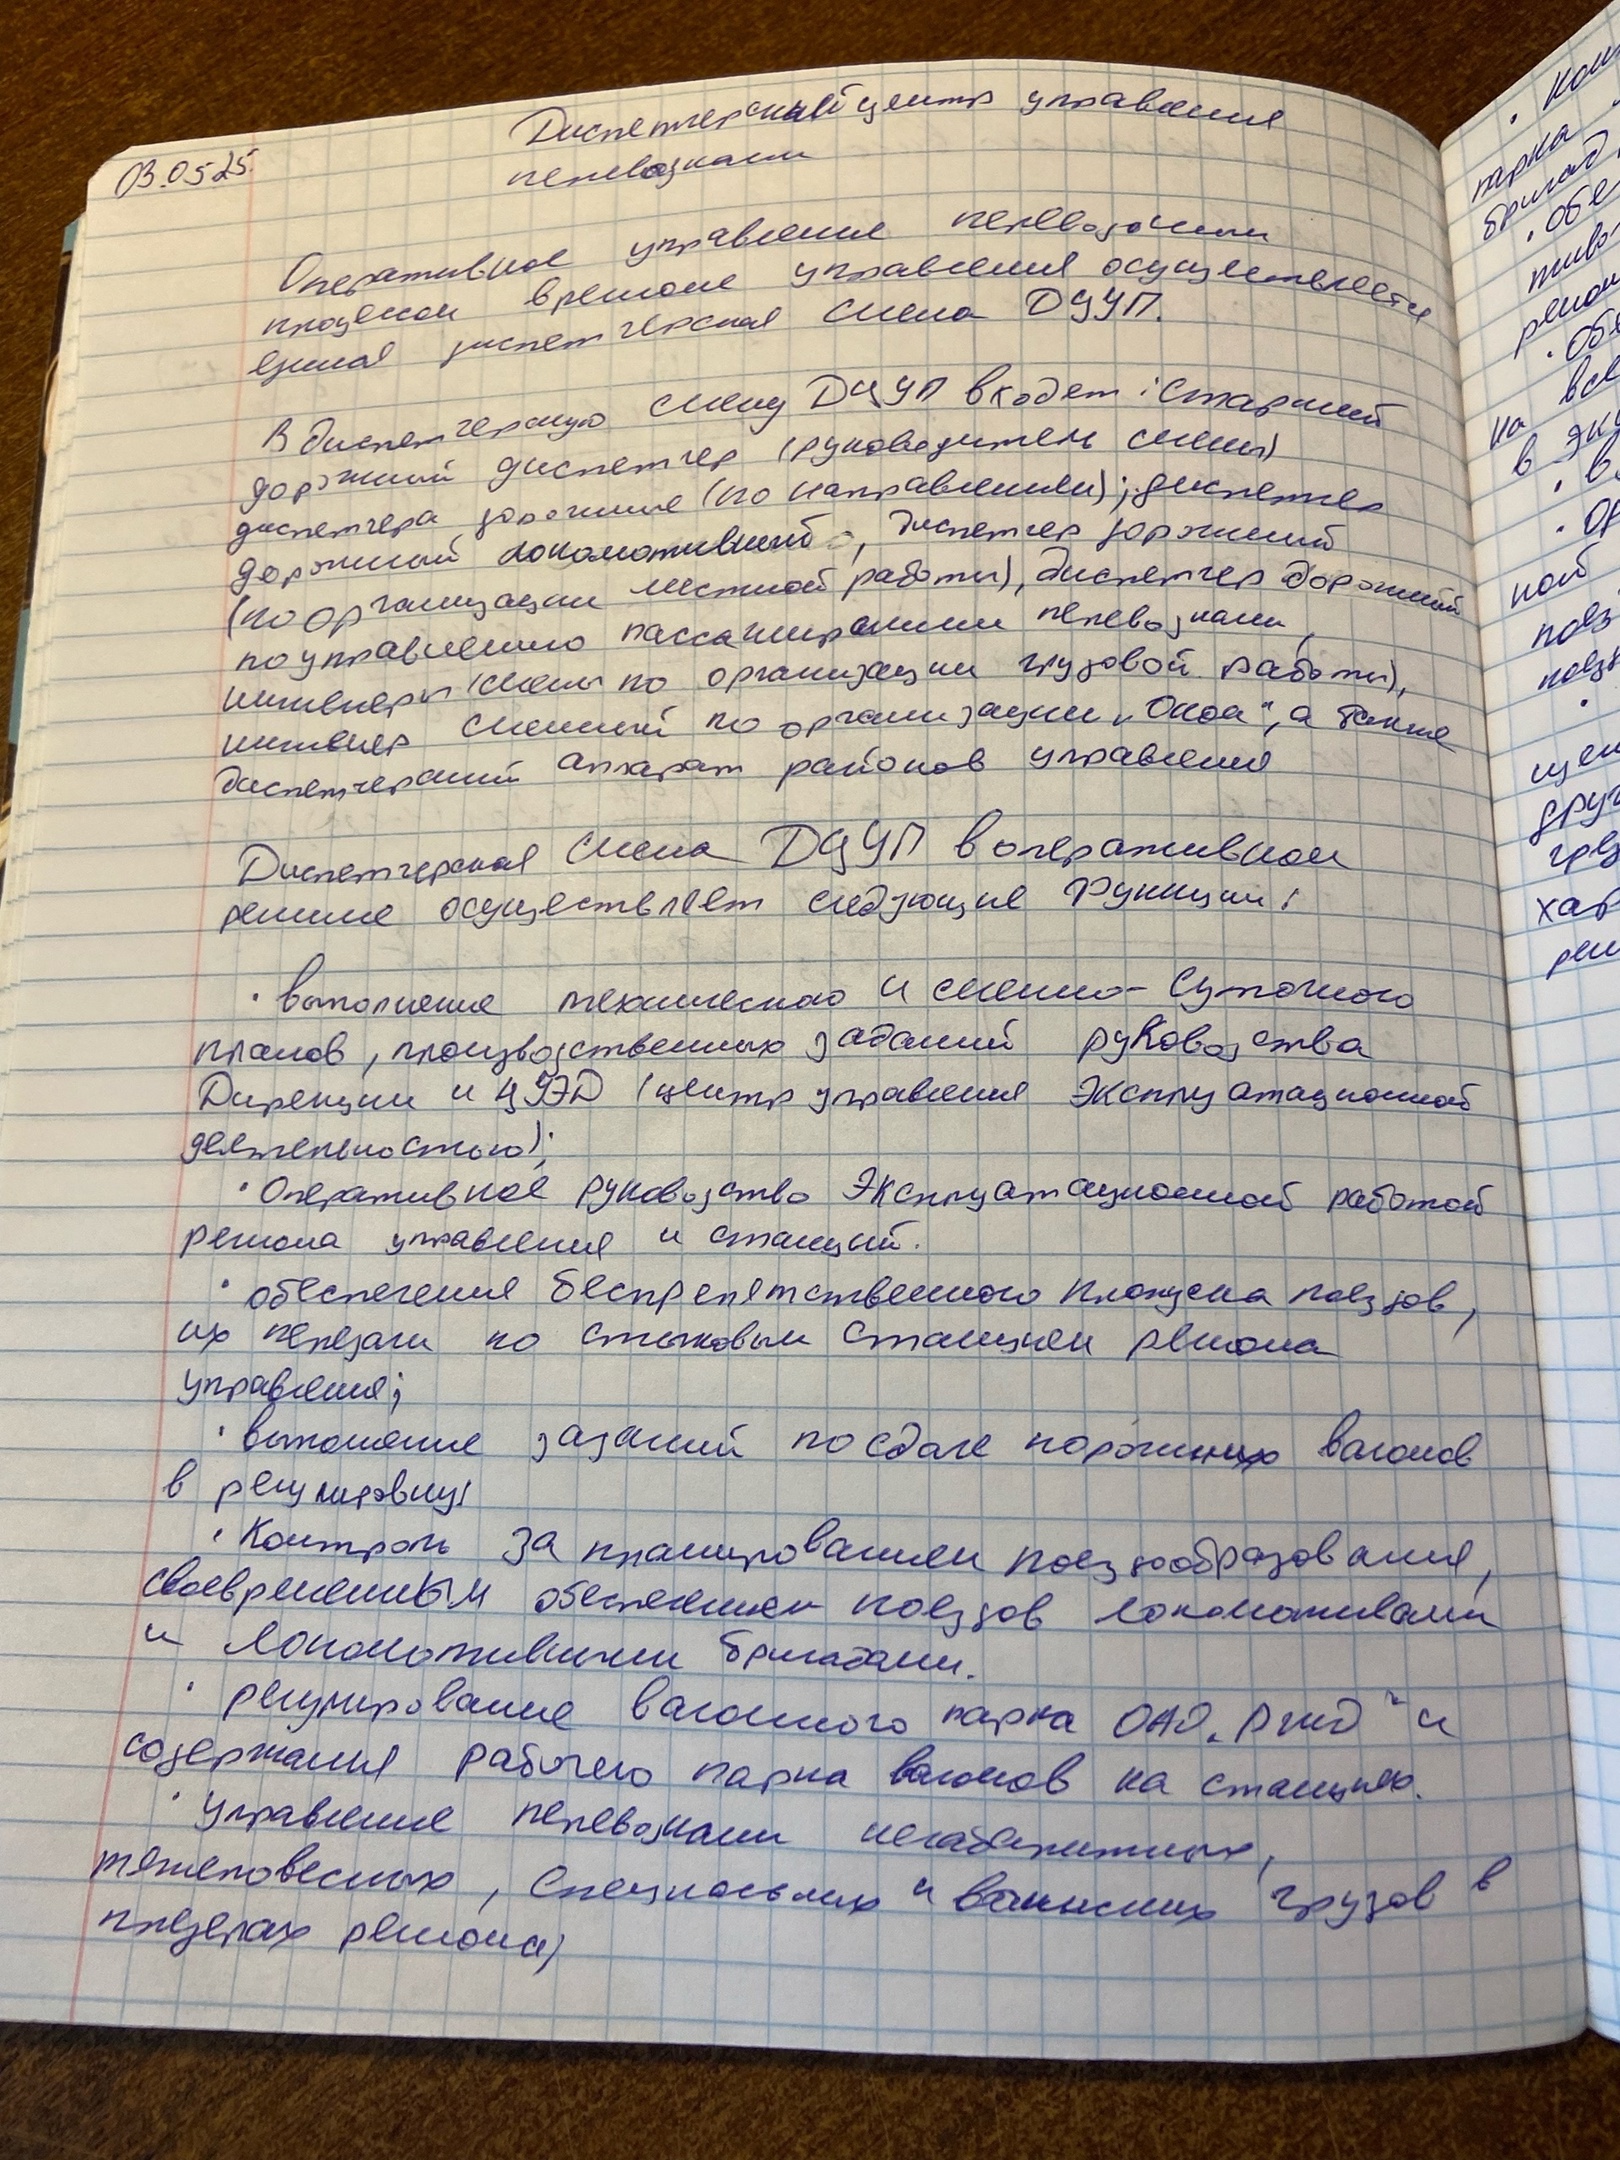 03.05.25.
Диспетчерский центр управления
перевозками
Оперативное управление перевозочным
процессом в регионе управления осуществляется
единая диспетчерская смена ДЦУП.
В диспетчерскую смену ДЦУП входят: Старший
дорожный диспетчер (руководитель смены)
диспетчера дорожные (по направлениям); диспетчер
дорожный локомотивный, диспетчер дорожный
(по организации местной работы), диспетчер дорожный
по управлению пассажирскими перевозками,
инженеры (смены по организации грузовой работы),
инженер сменный по организации „Окна“, а также
диспетчерский аппарат районов управления
Диспетчерская смена ДЦУП в оперативном
режиме осуществляет следующие функции:
· выполнение технического и сменно-суточного
планов, производственных заданий руководства
Дирекции и ЦУЭД (центр управления эксплуатационной
деятельностью);
· Оперативное руководство эксплуатационной работой
региона управления и станций.
· обеспечения беспрепятственного пропуска поездов,
их передачи по стыковым станциям региона
управления;
· выполнение заданий по сдаче порожних вагонов
в регулировку;
· Контроль за планированием поездообразования,
своевременным обеспечением поездов локомотивами
и локомотивными бригадами.
· регулирование вагонного парка ОАО „РЖД“ и
содержания рабочего парка вагонов на станциях.
· управление перевозками негабаритных,
тяжеловесных, специальных и воинских грузов в
пределах региона;
парка
бригад
· обе
на все
в экс
· в
ной
поез
хар